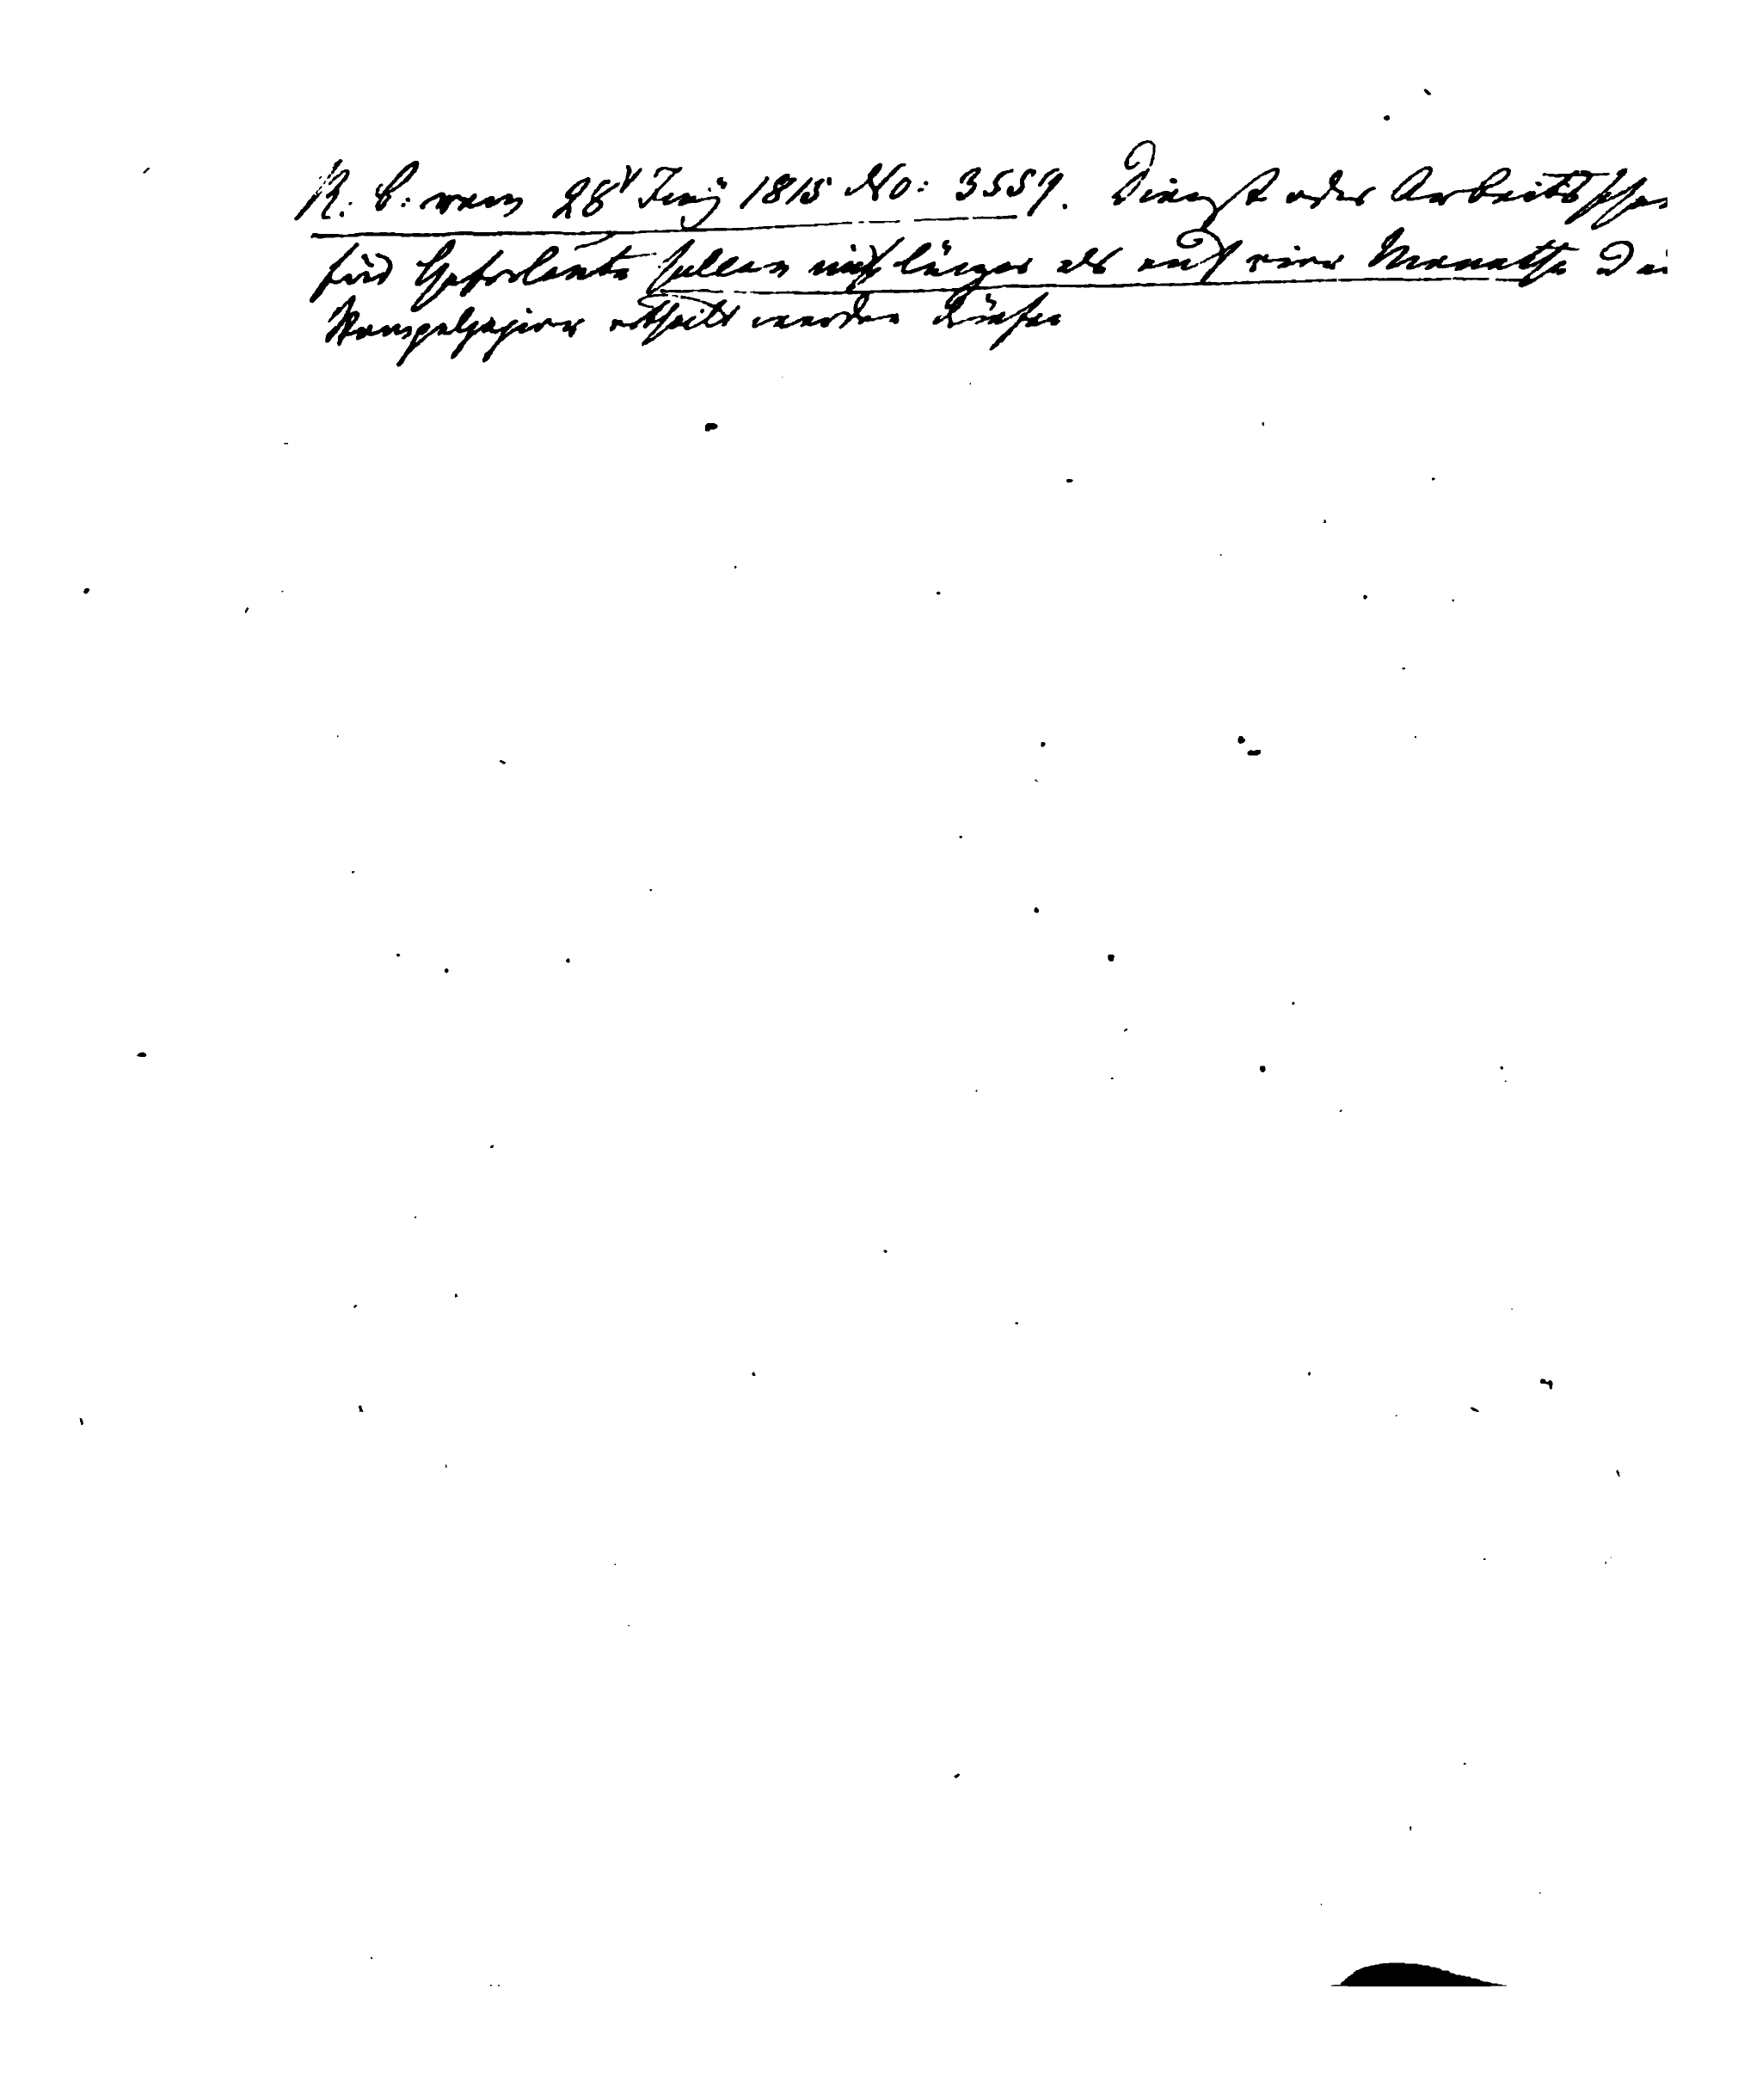 R. B: vom 28t Junÿ 1815 No: 3559. Dienst oder Arbeitssche
für Gehorlente sollen nicht länger als auf vier Monathe
Stempelpapier ertheilt werden dürfen